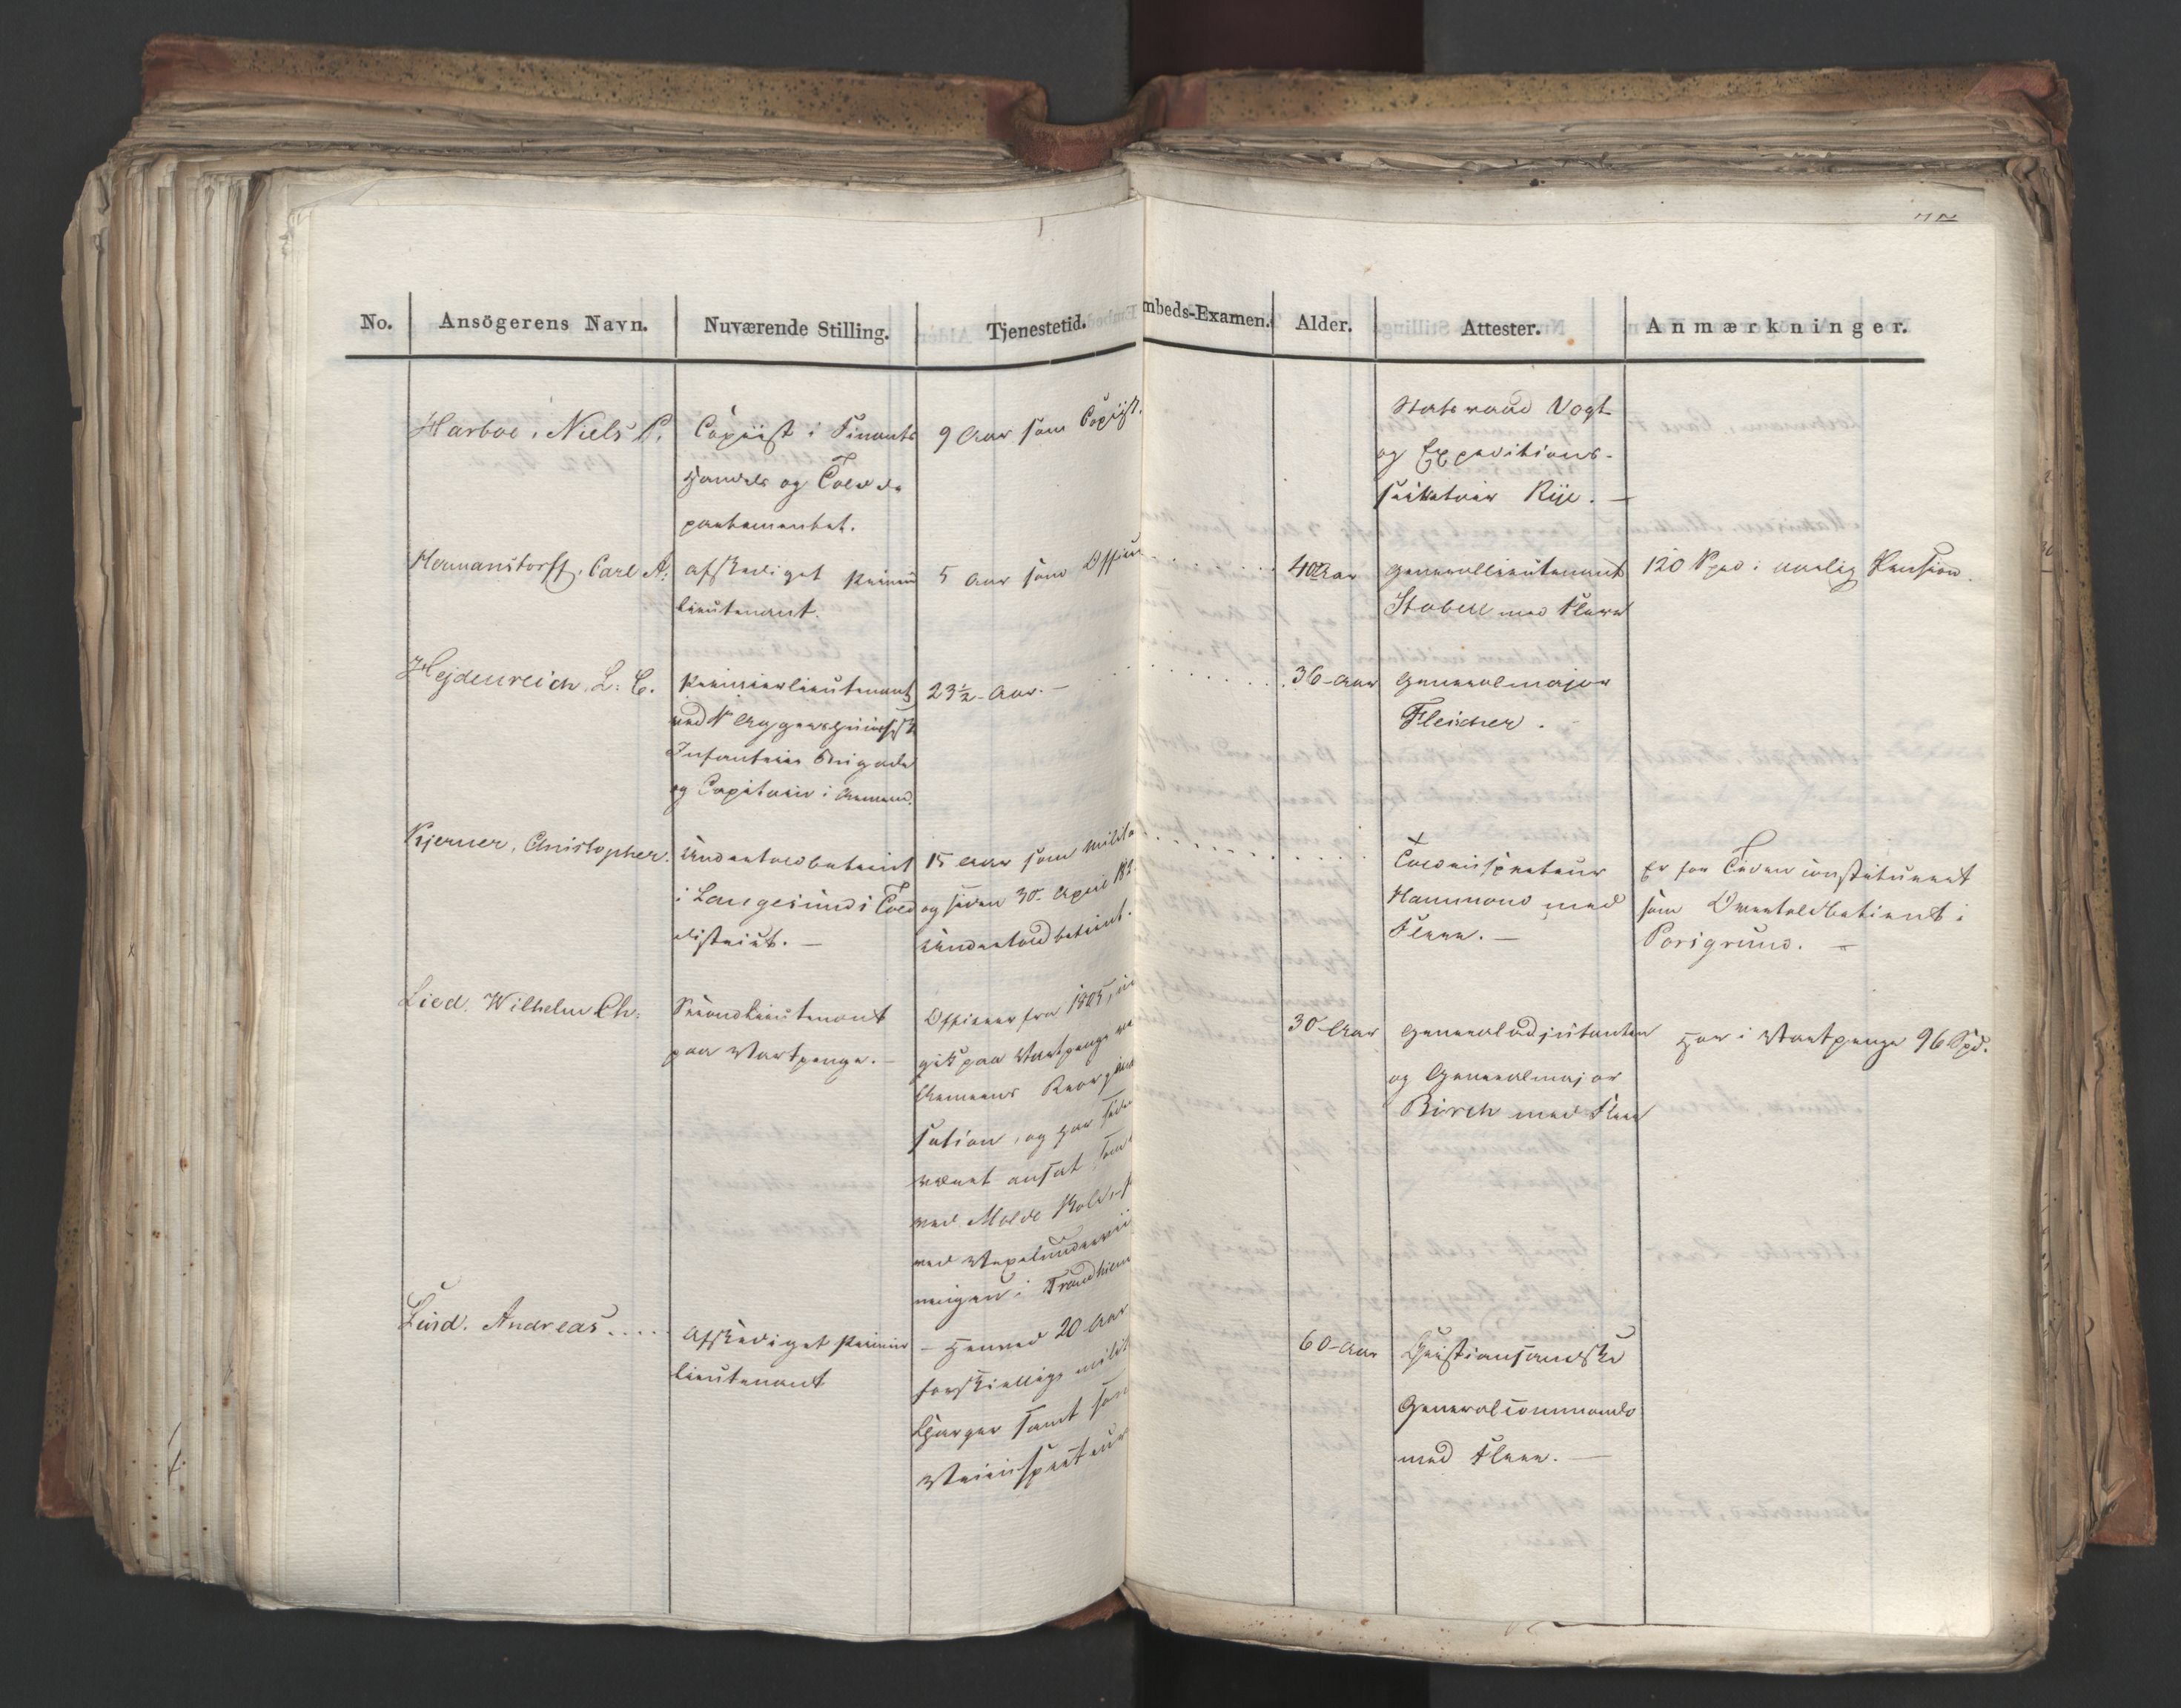 No. Ansögerens Navn. Nuværende Stilling. Tjenestetid. mbeds-Examen. Alder. Attester. Anmærkninger.
Harboe, Niels
Copiist i Finants
Handels og Told de
partementet.
9 Aar som Copiist.
Statsraad Vogt
og Expeditions-
secretair Rye. —
Hermanstorff, Carl A:
afskediget Premier
lieutenant.
5 Aar som Officer
40 Aar
Generallieutenant
Stabell med Flere
120 Spd: aarlig Pension.
Hejdenreich, L: C.
Premierlieutenant
ved Aggershuusiske
Infanterie Brigade
og Capitain i Armeen.
23½ Aar. —
36 Aar
Generalmajor
Fleischer. —
Kjerner, Christopher.
Undertoldbetient
i Langesunds Told
district. —
15 Aar som milita
og siden 30. April 182
Undertoldbetient.
Toldinspecteur
Hammond med
Flere. —
Er for Tiden constitueret
som Overtoldbetient i
Porsgrund. —
Lied, Wilhelm Ch:
Secondlieutenant
paa Vartpenge. —
Officeer fra 1805,
gik paa Vartpenge ve
Armeens Reorgani
sation, og har siden
været ansat som
ved Molde
ved Vexelunderviis
ningen i Trondhiem
30 Aar
Generaladjutanten
og Generalmajor
Birch med Flere
Har i Vartpenge 96 Spd.
Lund, Andreas.....
Afskediget Premier
lieutenant
— henved 20 Aar
forskiellige milit
Charger samt som
Veiinspecteur
60 Aar
Christiansandske
Generalcommando
med Flere. —